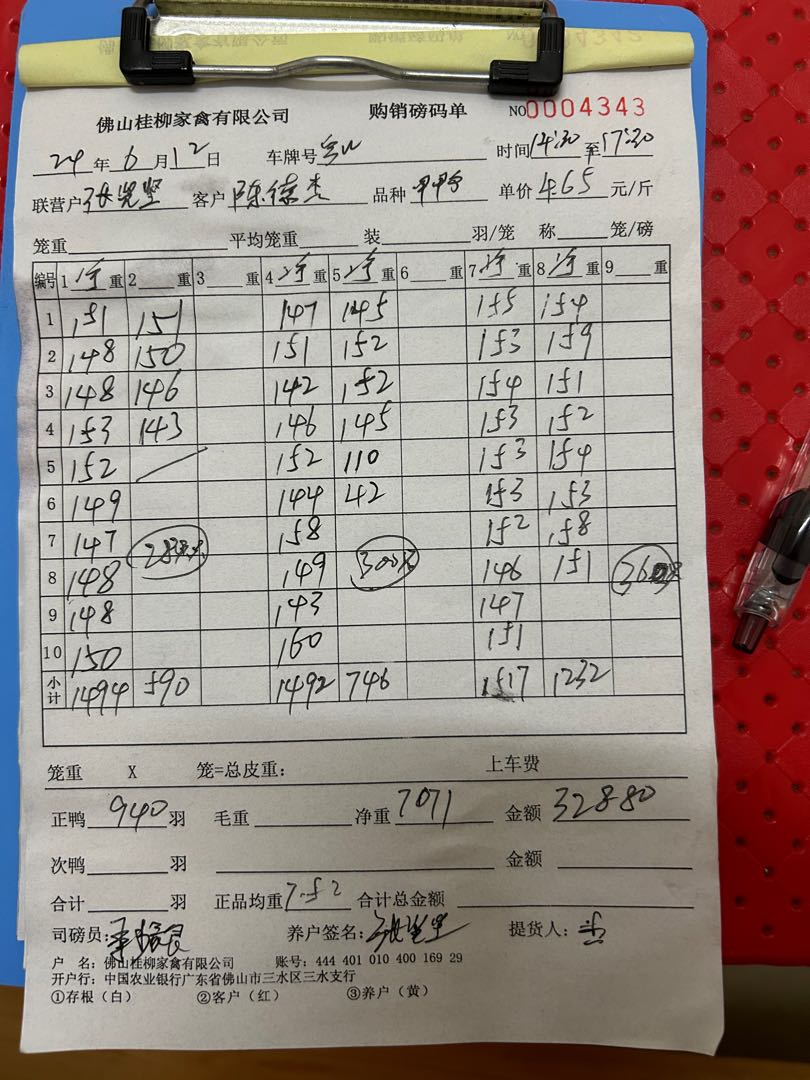 佛山桂柳家禽有限公司 购销磅码单 NO 0004343
24 年 6 月 12 日 车牌号 时间 14:30 至 17:30
联营户 客户 陈德杰 品种 单价 4.65 元/斤
笼重 平均笼重 装 羽/笼 称 笼/磅
编号 1 净 重 2 重 3 重 4 净 重 5 净 重 6 重 7 净 重 8 净 重 9 重
1 151 151 147 145 155 154
2 148 150 151 152 153 159
3 148 146 142 152 154 151
4 153 143 146 145 153 152
5 152 152 110 153 154
6 149 144 42 153 153
7 147 158 152 158
8 148 149 300 146 151
9 148 143 147
10 150 160 151
小计 1494 590 1492 746 1517 1232
笼重 X 笼=总皮重： 上车费
正鸭 940 羽 毛重 净重 7071 金额 32880
次鸭 羽 金额
合计 羽 正品均重 7.52 合计总金额
司磅员： 养户签名： 提货人：
户 名：佛山桂柳家禽有限公司 账号：444 401 010 400 169 29
开户行：中国农业银行广东省佛山市三水区三水支行
①存根（白） ②客户（红） ③养户（黄）